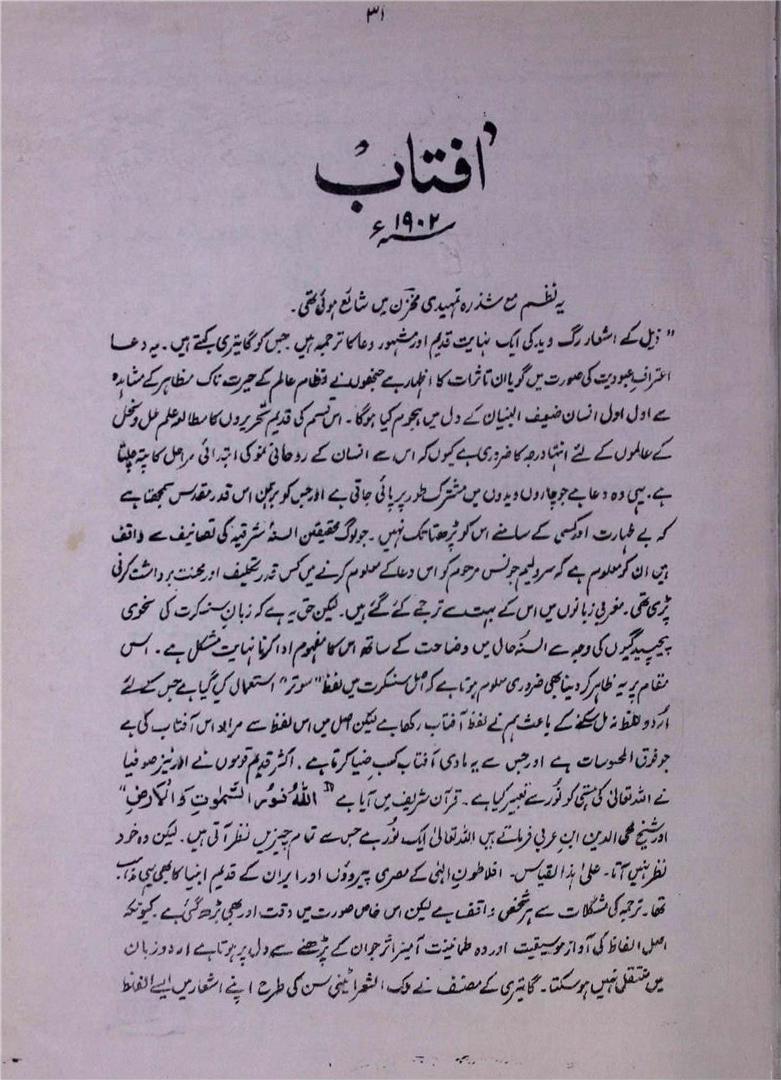 ۳۱
آفتاب
سنہ ۱۹۰۲ء
یہ نظم مع شذرہ تمہیدی مخزن میں شائع ہوئی تھی۔
" ذیل کے اشعار رگ وید کی ایک نہایت قدیم اور مشہور دعا کا ترجمہ ہیں جس کو گایتری کہتے ہیں۔ یہ دعا
اعترافِ عبودیت کی صورت میں گویا ان تاثرات کا اظہار ہے جنھوں نے نظامِ عالم کے حیرت ناک مظاہر کے مشاہدہ
سے اول اول انسان ضعیف البنیان کے دل میں ہجوم کیا ہوگا۔ اس قسم کی قدیم تحریروں کا مطالعہ علم ملل و نحل
کے عالموں کے لئے انتہا درجہ کا ضروری ہے کیوں کہ اس سے انسان کے روحانی نمو کی ابتدائی مراحل کا پتہ چلتا
ہے۔ یہی وہ دعا ہے جو چاروں ویدوں میں مشترک طور پر پائی جاتی ہے اور جس کو برہمن اس قدر مقدس سمجھتا ہے
کہ بے طہارت اور کسی کے سامنے اس کو پڑھتا تک نہیں۔ جو لوگ محققین السنۂ شرقیہ کی تصانیف سے واقف
ہیں ان کو معلوم ہے کہ سر ولیم جونس مرحوم کو اس دعا کے معلوم کرنے میں کس قدر تکلیف اور محنت برداشت کرنی
پڑی تھی۔ مغربی زبانوں میں اس کے بہت سے ترجمے کئے گئے ہیں۔ لیکن حق یہ ہے کہ زبانِ سنسکرت کی نحوی
پیچیدگیوں کی وجہ سے السنۂ حال میں وضاحت کے ساتھ اس کا مفہوم ادا کرنا نہایت مشکل ہے۔ اس
مقام پر یہ ظاہر کر دینا بھی ضروری معلوم ہوتا ہے کہ اصل سنسکرت میں لفظ "سوتر" استعمال کیا گیا ہے جس کے لئے
اُردو لفظ نہ مل سکنے کے باعث ہم نے لفظ آفتاب رکھا ہے لیکن اصل میں اس لفظ سے مراد اس آفتاب کی ہے
جو فوق المحسوسات ہے اور جس سے یہ مادی آفتاب کسبِ ضیا کرتا ہے۔ اکثر قدیم قوموں نے اور نیز صوفیا
نے اللہ تعالیٰ کی ہستی کو نُور سے تعبیر کیا ہے۔ قرآن شریف میں آیا ہے "اللّٰهُ نُوْرُ السَّمٰوٰتِ وَ الْاَرْضِ"
اور شیخ محی الدین ابنِ عربی فرماتے ہیں اللہ تعالیٰ ایک نُور ہے جس سے تمام چیزیں نظر آتی ہیں۔ لیکن وہ خود
نظر نہیں آتا۔ علیٰ ہذا القیاس۔ افلاطونِ الٰہی کے مصری پیروؤں اور ایران کے قدیم انبیا کا بھی یہی مذہب
تھا۔ ترجمہ کی مشکلات سے ہر شخص واقف ہے لیکن اس خاص صورت میں دقت اور بھی بڑھ گئی ہے۔ کیونکہ
اصل الفاظ کی آواز موسیقیت اور وہ طمانیت آمیز اثر جو ان کے پڑھنے سے دل پر ہوتا ہے اردو زبان
میں منتقل نہیں ہو سکتا۔ گایتری کے مصنف نے ملک الشعرا ٹینی سن کی طرح اپنے اشعار میں ایسے الفاظ